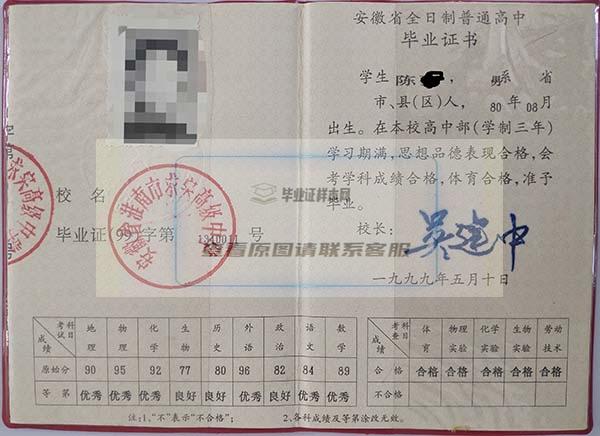 安徽省全日制普通高中
毕业证书
学生 陈 , 男系 省
市、县(区)人, 80 年 08 月
出生。在本校高中部(学制三年)
学习期满,思想品德表现合格,会
考学科成绩合格,体育合格,准予
毕业。
校长: 吴建中
一九九九年五月十日
校 名
安徽省淮南市 高级中
毕业证 99 字第 号
毕业证样本网
查看原图请联系客服
科目 考试 成绩 地理 物理 化学 生物 历史 外语 政治 语文 数学
原始分 90 95 92 77 80 96 82 84 89
等 第 优秀 优秀 优秀 良好 良好 优秀 良好 优秀 优秀
科目 考查 成绩 体育 物理实验 化学实验 生物实验 劳动技术
合 格 合格 合格 合格 合格 合格
不合格
注:1、“不”表示“不合格”; 2、各科成绩及等第涂改无效。